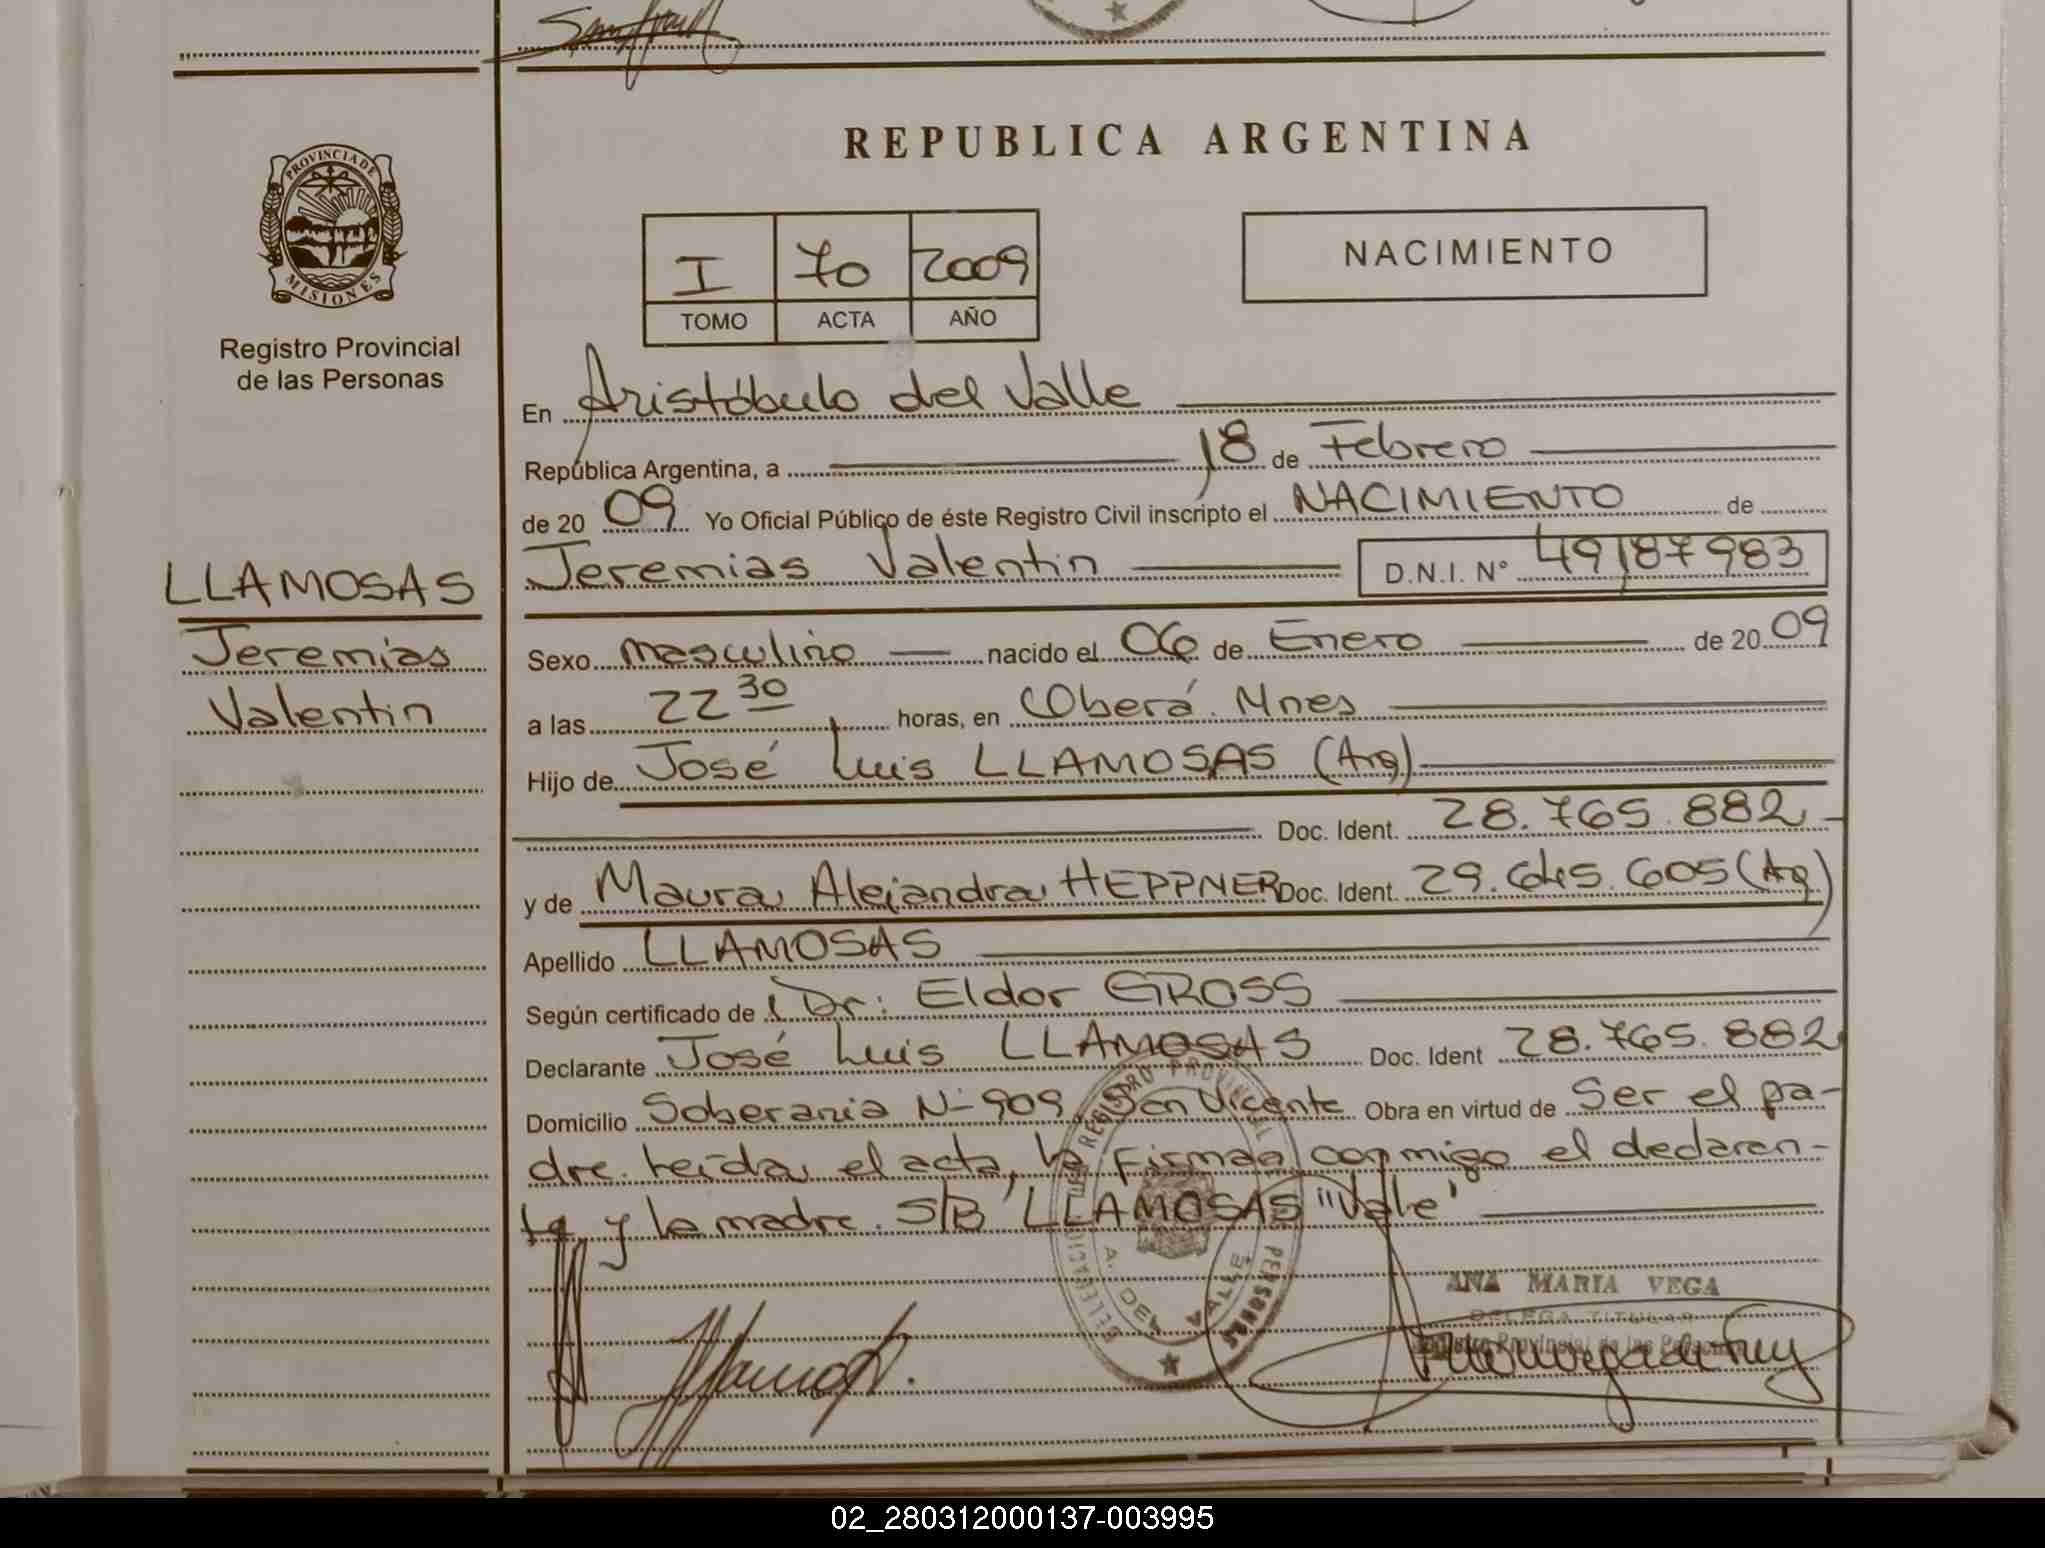 REPUBLICA ARGENTINA
PROVINCIA DE
MISIONES
Registro Provincial
de las Personas
I 70 2009
TOMO ACTA AÑO
NACIMIENTO
En Aristóbulo del Valle
República Argentina, a 18 de Febrero
de 20 09 Yo Oficial Público de éste Registro Civil inscripto el NACIMIENTO de
LLAMOSAS
Jeremias
Valentin
Jeremias Valentin D.N.I. Nº 49187983
Sexo masculino nacido el 06 de Enero de 20 09
a las 22 30 horas, en Oberá. Mnes
Hijo de José Luis LLAMOSAS (Arg)
Doc. Ident. 28.765.882
y de Maura Alejandra HEPPNER Doc. Ident. 29.645.605 (Arg)
Apellido LLAMOSAS
Según certificado de Dr: Eldor GROSS
Declarante José Luis LLAMOSAS Doc. Ident 28.765.882
Domicilio Soberania Nº 909 San Vicente Obra en virtud de Ser el pa-
dre. Leída el acta, la firman conmigo el declaran-
te y la madre. S/B LLAMOSAS "Vale"
REGISTRO PROVINCIAL
PERSONAS
DELEGACION
A. DEL VALLE
ANA MARIA VEGA
DELEGA TITULAR
Registro Provincial de las Personas
02_280312000137-003995